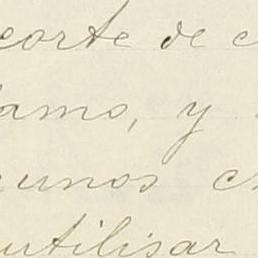 corte de c
amo, y
unos c
utilisar